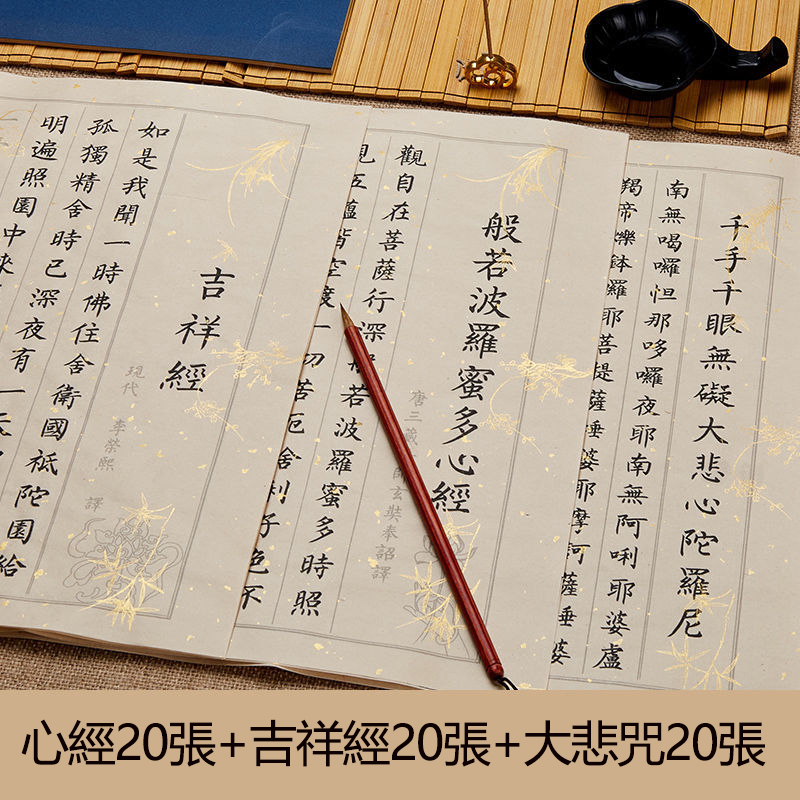 千手千眼無礙大悲心陀羅尼
南無喝囉怛那哆囉夜耶南無阿唎耶婆盧
羯帝爍鉢羅耶菩提薩埵婆耶摩訶薩埵婆
般若波羅蜜多心經
唐三藏師玄奘奉詔譯
觀自在菩薩行深般若波羅蜜多時照
見五蘊皆空度一切苦厄舍利子色不
吉祥經
現代 李榮熙 譯
如是我聞一時佛住舍衛國祗陀園給
孤獨精舍時已深夜有一天
明遍照園中來
心經20張+吉祥經20張+大悲咒20張